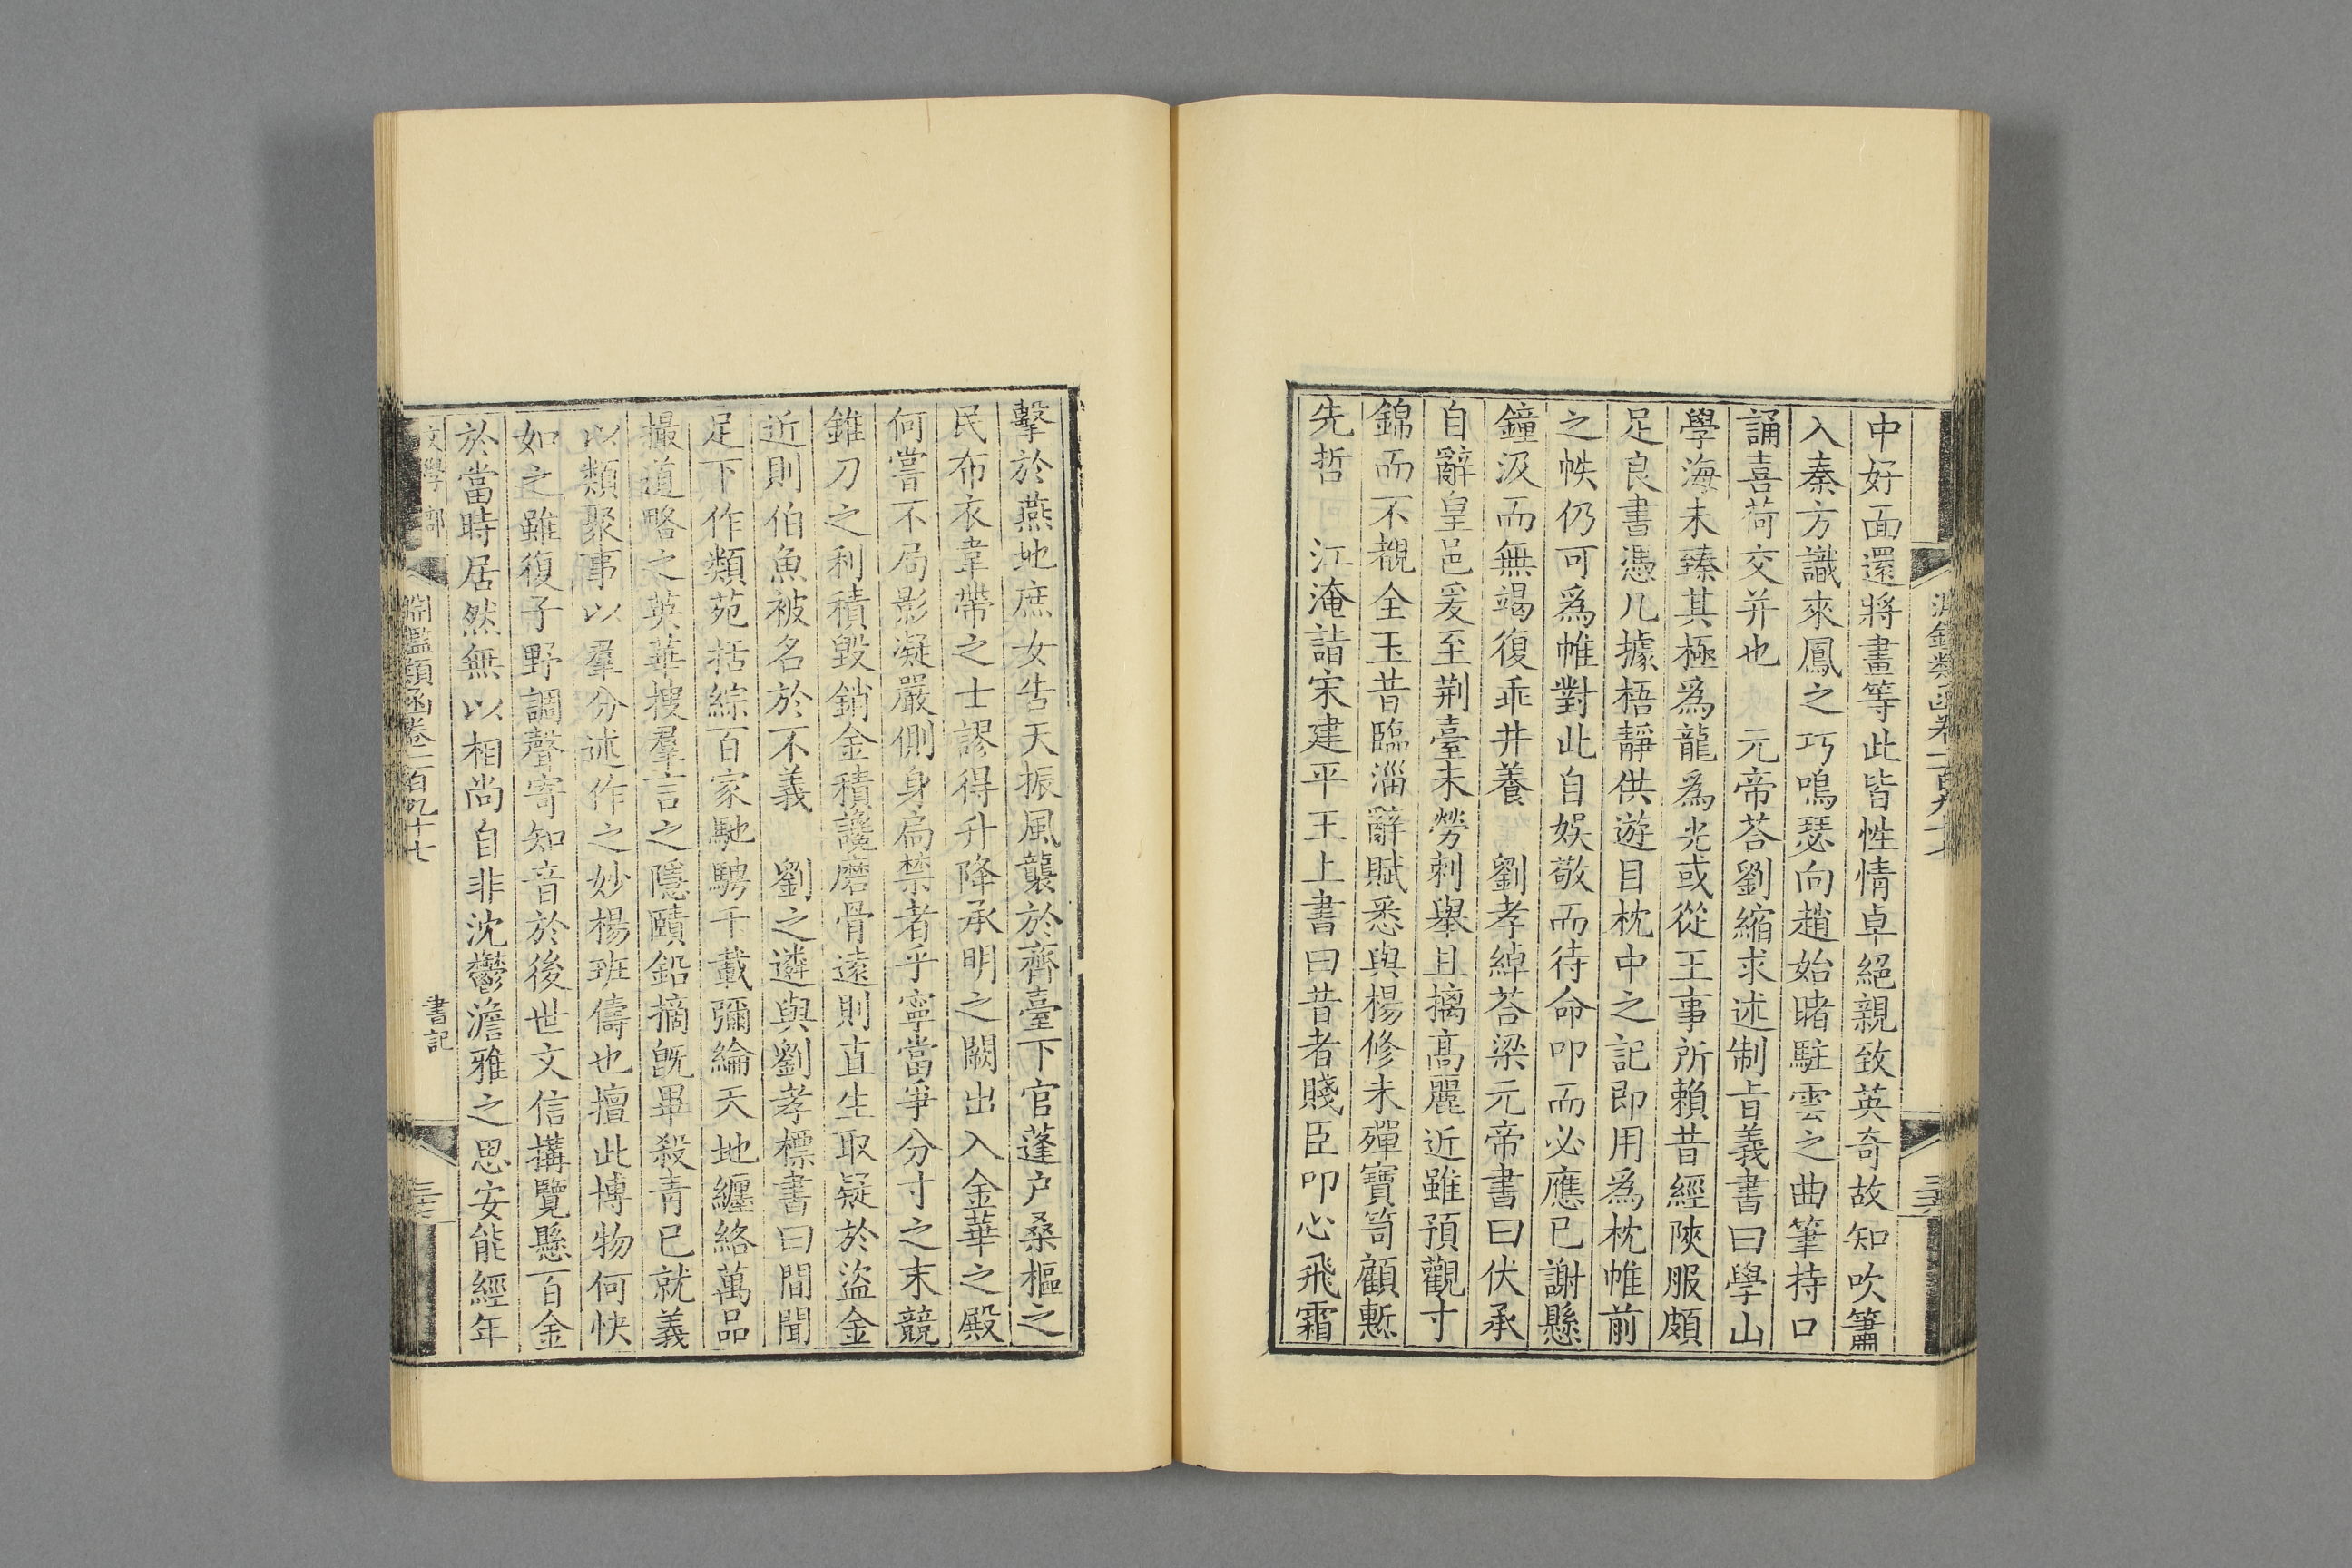 中好面還將畫等此皆性情卓絕親致英奇故知吹簫
入秦方識來鳳之巧鳴瑟向趙始睹駐雲之曲筆持口
誦喜荷交并也　元帝荅劉縮求述制旨義書曰學山
學海未臻其極爲龍爲光或從王事所賴昔經陝服頗
足良書憑几據梧靜供遊目枕中之記即用爲枕帷前
之帙仍可爲帷對此自娛敬而待命叩而必應已謝懸
鐘汲而無竭復乖井養　劉孝綽荅梁元帝書曰伏承
自辭皇邑爰至荆臺未勞刺舉且摛髙麗近雖預觀寸
錦而不覩全玉昔臨淄辭賦悉與楊修未殫寶笥顧慙
先哲　江淹詣宋建平王上書曰昔者賤臣叩心飛霜
擊於燕地庶女告天振風襲於齊臺下官蓬户桑樞之
民布衣韋帶之士謬得升降承明之闕出入金華之殿
何嘗不局影凝嚴側身扃禁者乎寧當爭分寸之末競
錐刀之利積毀銷金積讒磨骨遠則直生取疑於盜金
近則伯魚被名於不義　劉之遴與劉孝標書曰間聞
足下作類苑括綜百家馳騁千載彌綸天地纏絡萬品
撮道略之英華搜羣言之隱賾鉛摘旣畢殺青已就義
以類聚事以羣分述作之妙楊班儔也擅此博物何快
如之雖復子野調聲寄知音於後世文信搆覽懸百金
於當時居然無以相尚自非沈鬱澹雅之思安能經年
文學部　淵鑑類函卷二百九十七　書記